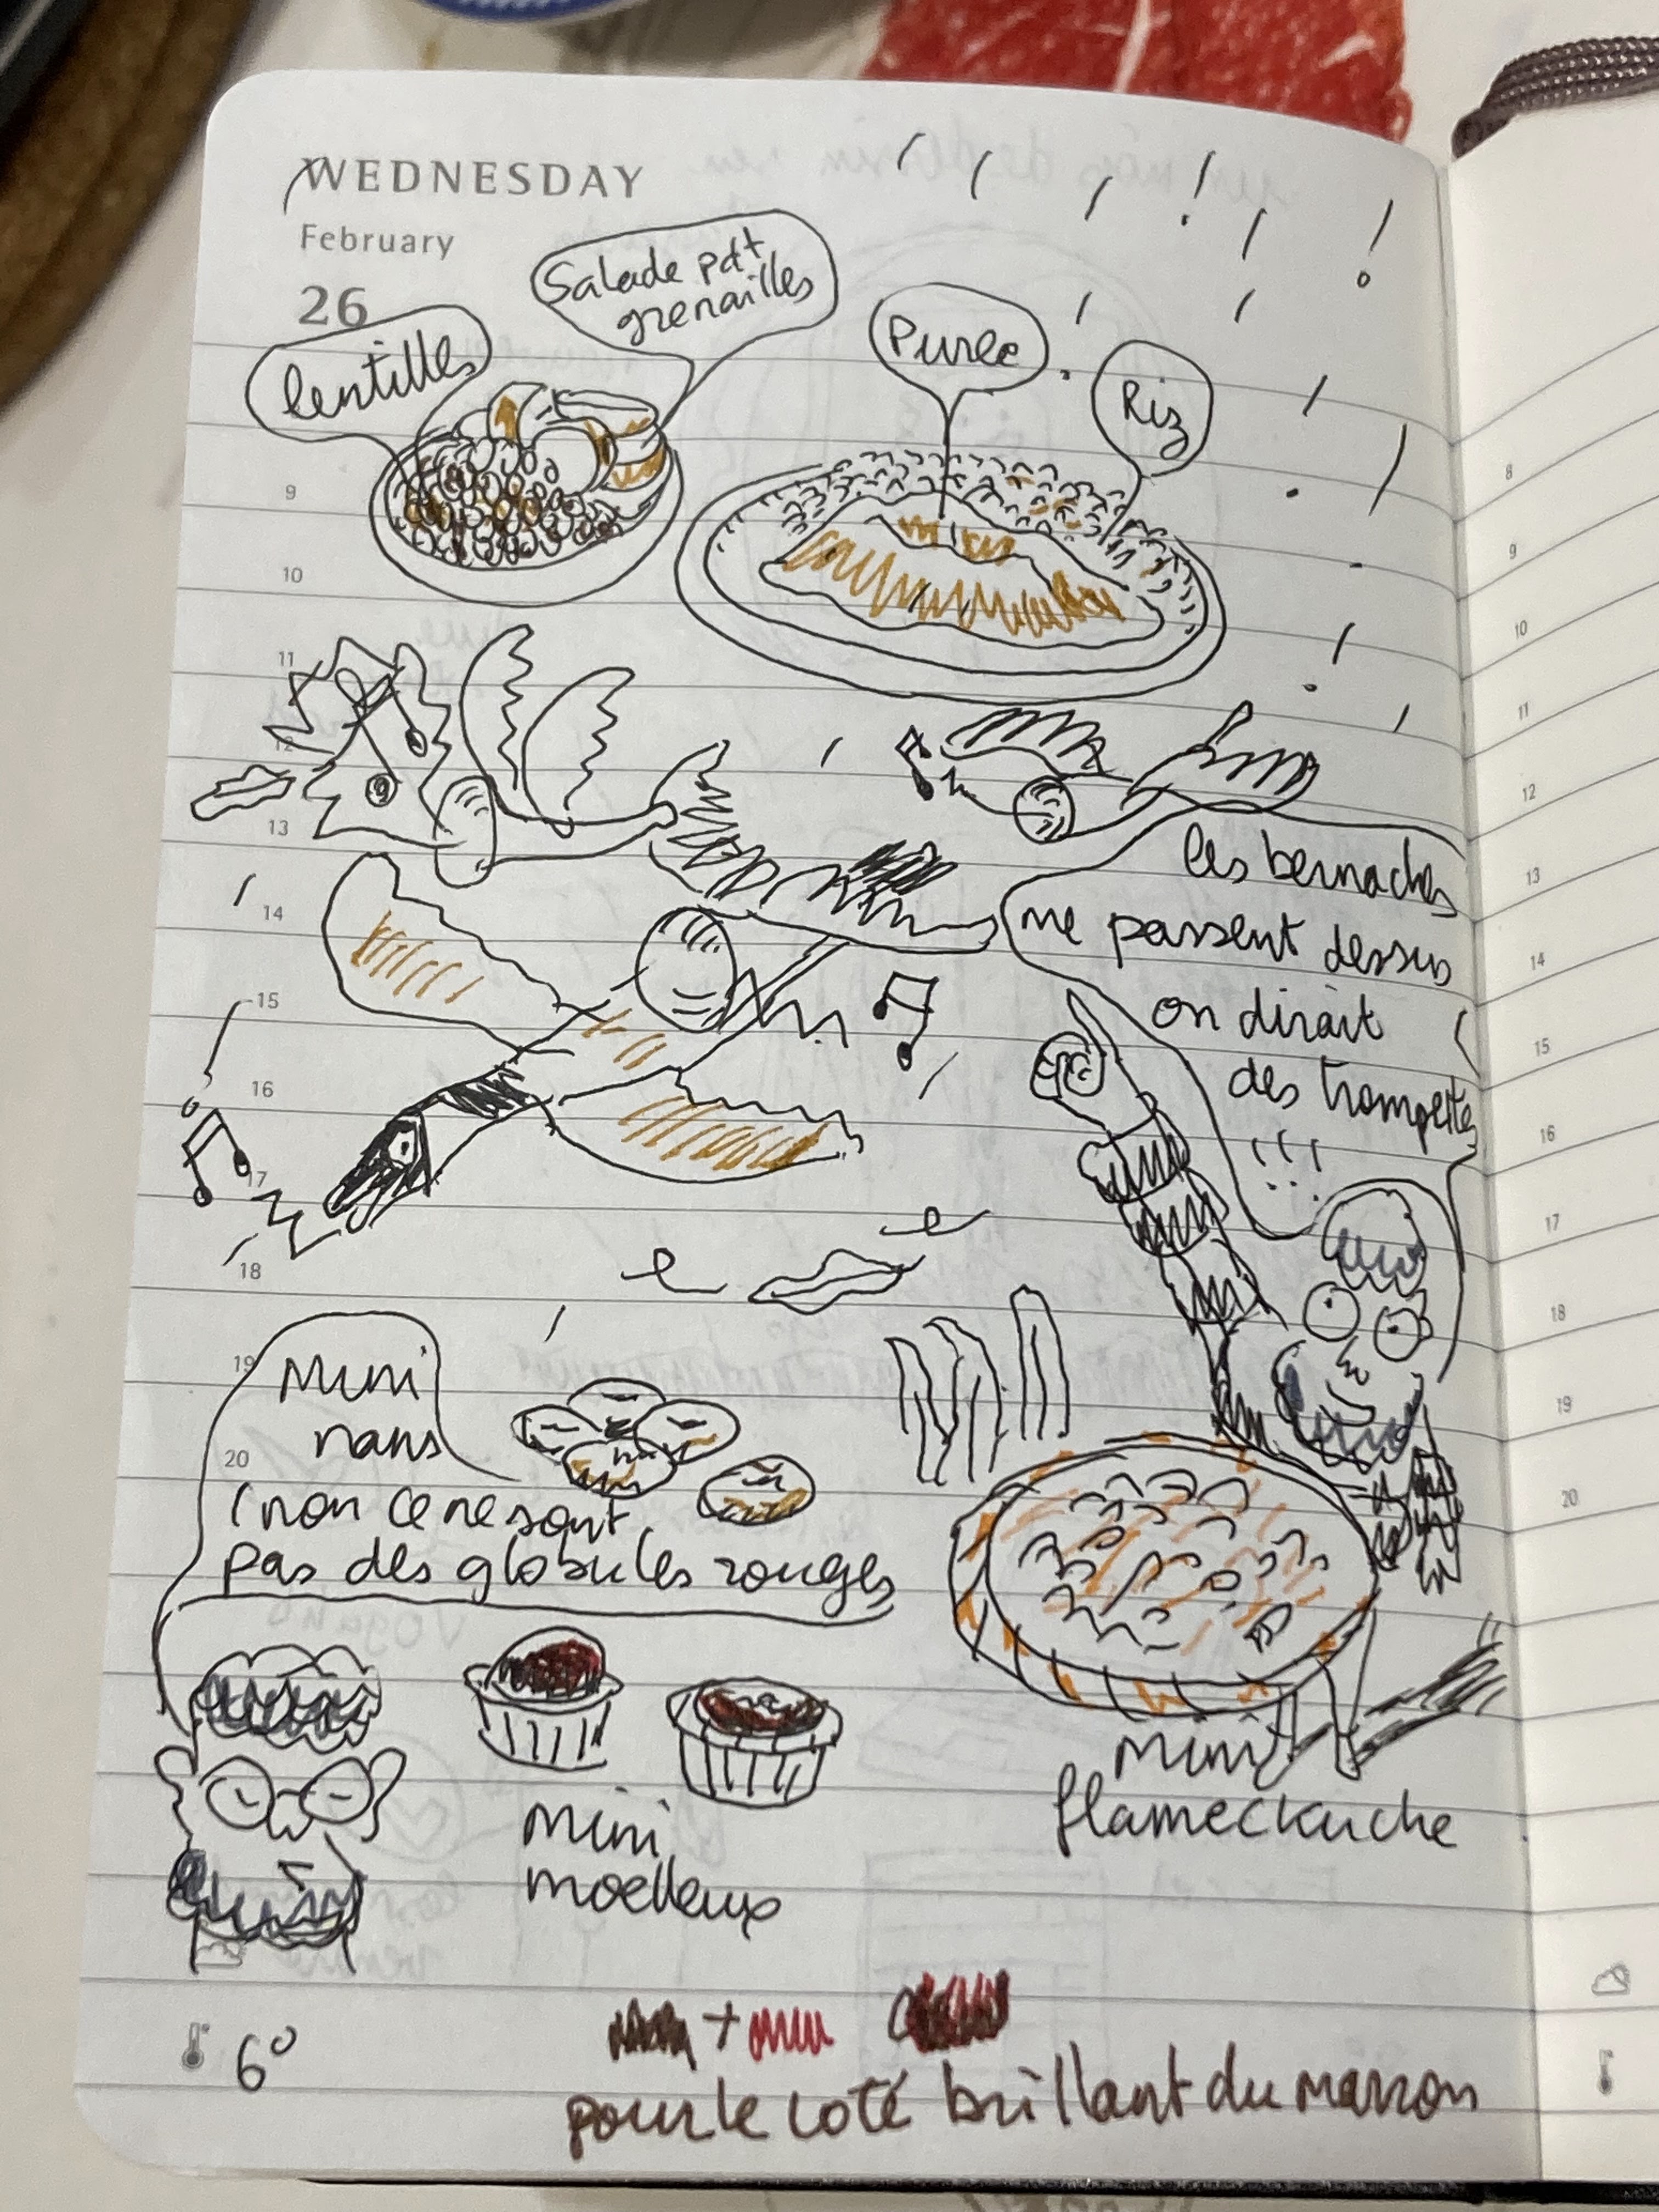 WEDNESDAY
February
26
lentilles
Salade pdt
grenailles
Purée
Riz
9
10
11
12
13
14
15
16
17
18
19
20
les bernaches
me passent dessus
on dirait
des trompettes
!!!
Mini
nans
(non ce ne sont
pas des globules rouges
mini
moelleux
mini
flameckuche
6°
+
pour le coté brillant du marron
8
9
10
11
12
13
14
15
16
17
18
19
20